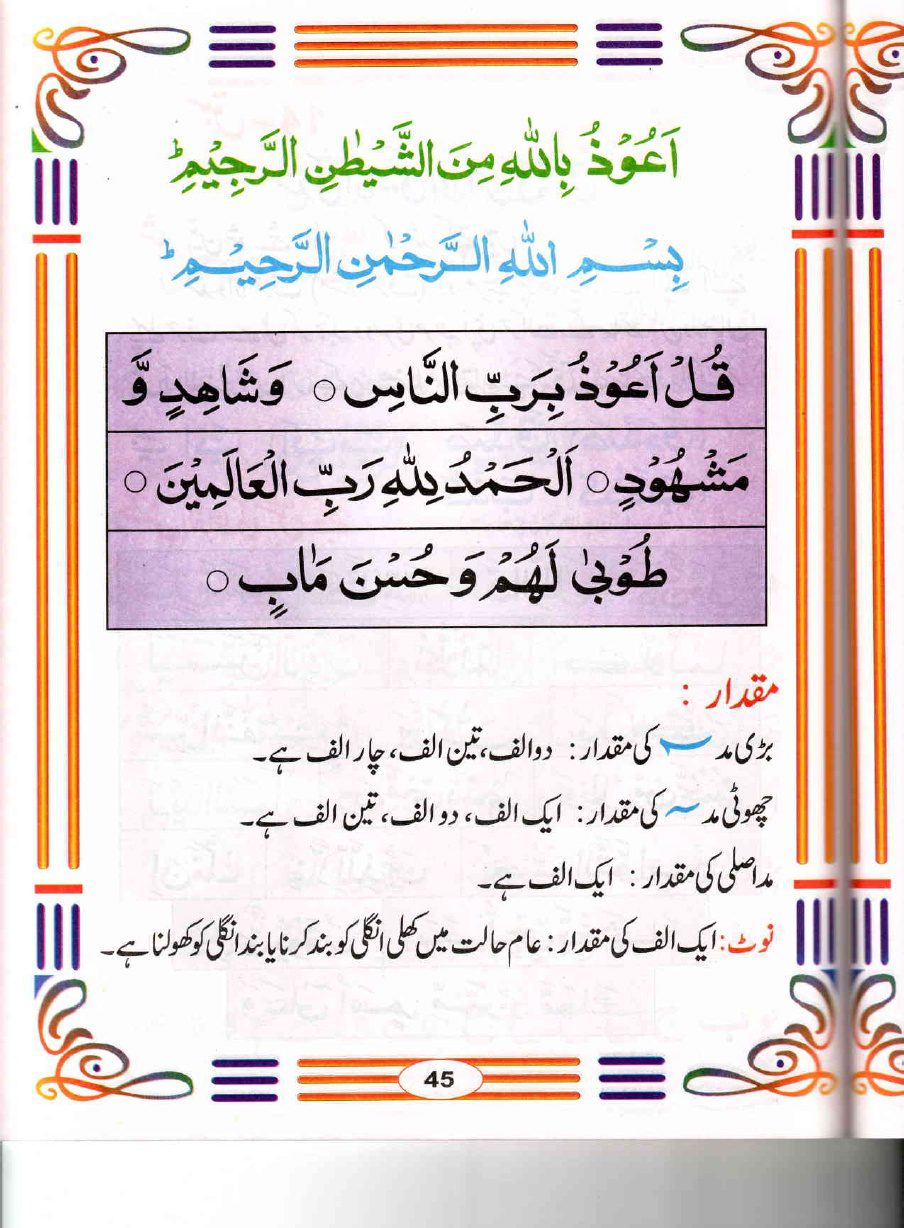 اَعُوْذُ بِاللّٰهِ مِنَ الشَّيْطٰنِ الرَّجِيْمِ ؕ
بِسْمِ اللّٰهِ الرَّحْمٰنِ الرَّحِيْمِ ؕ
قُلْ اَعُوْذُ بِرَبِّ النَّاسِ ○ وَشَاهِدٍ وَّ
مَشْهُوْدٍ ○ اَلْحَمْدُ لِلّٰهِ رَبِّ الْعَالَمِيْنَ ○
طُوْبٰى لَهُمْ وَحُسْنَ مَاٰبٍ ○
مقدار :
بڑی مد ــٓـ کی مقدار : دو الف، تین الف، چار الف ہے۔
چھوٹی مد ~ کی مقدار : ایک الف، دو الف، تین الف ہے۔
مد اصلی کی مقدار : ایک الف ہے۔
نوٹ: ایک الف کی مقدار : عام حالت میں کھلی انگلی کو بند کرنا یا بند انگلی کو کھولنا ہے۔
45